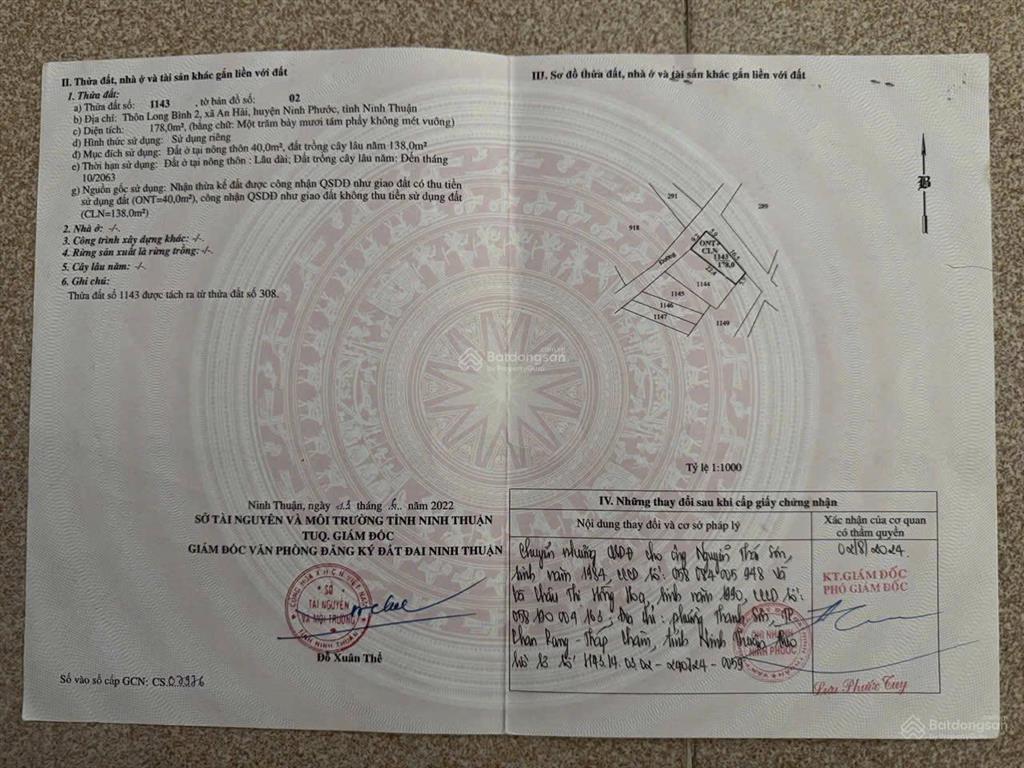 II. Thửa đất, nhà ở và tài sản khác gắn liền với đất
1. Thửa đất:
a) Thửa đất số: 1143 , tờ bản đồ số: 02
b) Địa chỉ: Thôn Long Bình 2, xã An Hải, huyện Ninh Phước, tỉnh Ninh Thuận
c) Diện tích: 178,0m², (bằng chữ: Một trăm bảy mươi tám phẩy không mét vuông)
d) Hình thức sử dụng: Sử dụng riêng
đ) Mục đích sử dụng: Đất ở tại nông thôn 40,0m², đất trồng cây lâu năm 138,0m²
e) Thời hạn sử dụng: Đất ở tại nông thôn : Lâu dài; Đất trồng cây lâu năm: Đến tháng
10/2063
g) Nguồn gốc sử dụng: Nhận thừa kế đất được công nhận QSDĐ như giao đất có thu tiền
sử dụng đất (ONT=40,0m²), công nhận QSDĐ như giao đất không thu tiền sử dụng đất
(CLN=138,0m²)
2. Nhà ở: -/-
3. Công trình xây dựng khác: -/-
4. Rừng sản xuất là rừng trồng: -/-
5. Cây lâu năm: -/-
6. Ghi chú:
Thửa đất số 1143 được tách ra từ thửa đất số 308.
Ninh Thuận, ngày tháng năm 2022
SỞ TÀI NGUYÊN VÀ MÔI TRƯỜNG TỈNH NINH THUẬN
TUQ. GIÁM ĐỐC
GIÁM ĐỐC VĂN PHÒNG ĐĂNG KÝ ĐẤT ĐAI NINH THUẬN
SỞ
TÀI NGUYÊN
VÀ MÔI TRƯỜNG
Đỗ Xuân Thế
Số vào sổ cấp GCN: CS.
III. Sơ đồ thửa đất, nhà ở và tài sản khác gắn liền với đất
B
291
289
918
ONT+
CLN
1143
178,0
Đường
1144
1145
1146
1147
1149
Tỷ lệ 1:1000
IV. Những thay đổi sau khi cấp giấy chứng nhận
Nội dung thay đổi và cơ sở pháp lý
Xác nhận của cơ quan
có thẩm quyền
Chuyển nhượng QSDĐ cho ông Nguyễn Thái Sơn,
sinh năm 1984, CCCD số: 058 084 005 948 và
bà Châu Thị Hồng Hoa, sinh năm 1990, CCCD số:
địa chỉ: phường Thanh Sơn, TP
Phan Rang - Tháp Chàm, tỉnh Ninh Thuận
02/8/2024.
KT.GIÁM ĐỐC
PHÓ GIÁM ĐỐC
CHI NHÁNH
NINH PHƯỚC
Lưu Phước Tuy
Batdongsan
by PropertyGuru
Batdongsan